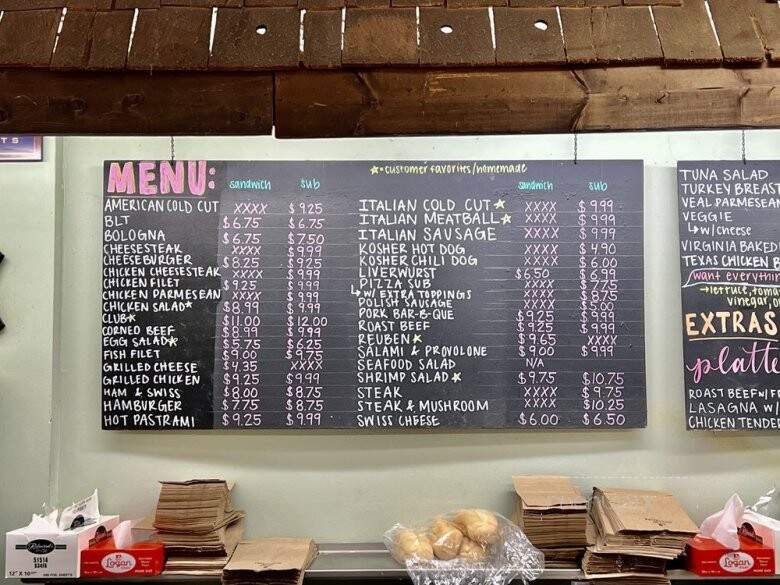 MENU:
sandwich sub
AMERICAN COLD CUT XXXX $9.25
BLT $6.75 $6.75
BOLOGNA $6.75 $7.50
CHEESESTEAK XXXX $9.99
CHEESEBURGER $8.25 $9.25
CHICKEN CHEESESTEAK XXXX $9.99
CHICKEN FILET $9.25 $9.99
CHICKEN PARMESEAN XXXX $9.99
CHICKEN SALAD★ $8.99 $9.99
CLUB★ $11.00 $12.00
CORNED BEEF $8.99 $9.99
EGG SALAD★ $5.75 $6.25
FISH FILET $9.00 $9.75
GRILLED CHEESE $4.35 XXXX
GRILLED CHICKEN $9.25 $9.99
HAM & SWISS $8.00 $8.75
HAMBURGER $7.75 $8.75
HOT PASTRAMI $9.25 $9.99
★=customer favorites/homemade
sandwich sub
ITALIAN COLD CUT★ XXXX $9.99
ITALIAN MEATBALL★ XXXX $9.99
ITALIAN SAUSAGE XXXX $9.99
KOSHER HOT DOG XXXX $4.90
KOSHER CHILI DOG XXXX $6.00
LIVERWURST $6.50 $6.99
PIZZA SUB XXXX $7.75
↳W/ EXTRA TOPPINGS XXXX $8.75
POLISH SAUSAGE XXXX $5.00
PORK BAR-B-QUE $9.25 $9.99
ROAST BEEF $9.25 $9.99
REUBEN★ $9.65 XXXX
SALAMI & PROVOLONE $9.00 $9.99
SEAFOOD SALAD N/A
SHRIMP SALAD★ $9.75 $10.75
STEAK XXXX $9.75
STEAK & MUSHROOM XXXX $10.25
SWISS CHEESE $6.00 $6.50
TUNA SALAD
TURKEY BREAST
VEAL PARMESEAN
VEGGIE
↳w/cheese
VIRGINIA BAKED
TEXAS CHICKEN B
want everythin
→lettuce, toma
vinegar, o
EXTRAS
platte
ROAST BEEF W/ FR
LASAGNA W/
CHICKEN TENDER
TS
51514
12" X 10
Logan
Logan